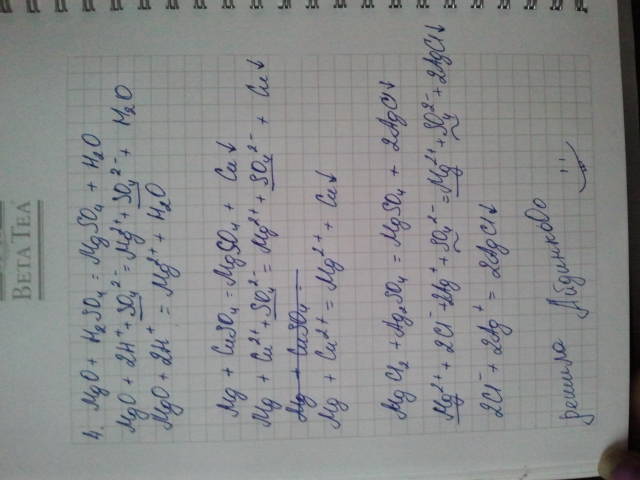 BETA TEA
4. MgO + H₂SO₄ = MgSO₄ + H₂O
MgO + 2H⁺ + SO₄²⁻ = Mg²⁺ + SO₄²⁻ + H₂O
MgO + 2H⁺ = Mg²⁺ + H₂O
Mg + CuSO₄ = MgSO₄ + Cu↓
Mg + Cu²⁺ + SO₄²⁻ = Mg²⁺ + SO₄²⁻ + Cu↓
Mg + CuSO₄ =
Mg + Cu²⁺ = Mg²⁺ + Cu↓
MgCl₂ + Ag₂SO₄ = MgSO₄ + 2AgCl↓
Mg²⁺ + 2Cl⁻ + 2Ag⁺ + SO₄²⁻ = Mg²⁺ + SO₄²⁻ + 2AgCl↓
2Cl⁻ + 2Ag⁺ = 2AgCl↓
решила АйдинкоОо